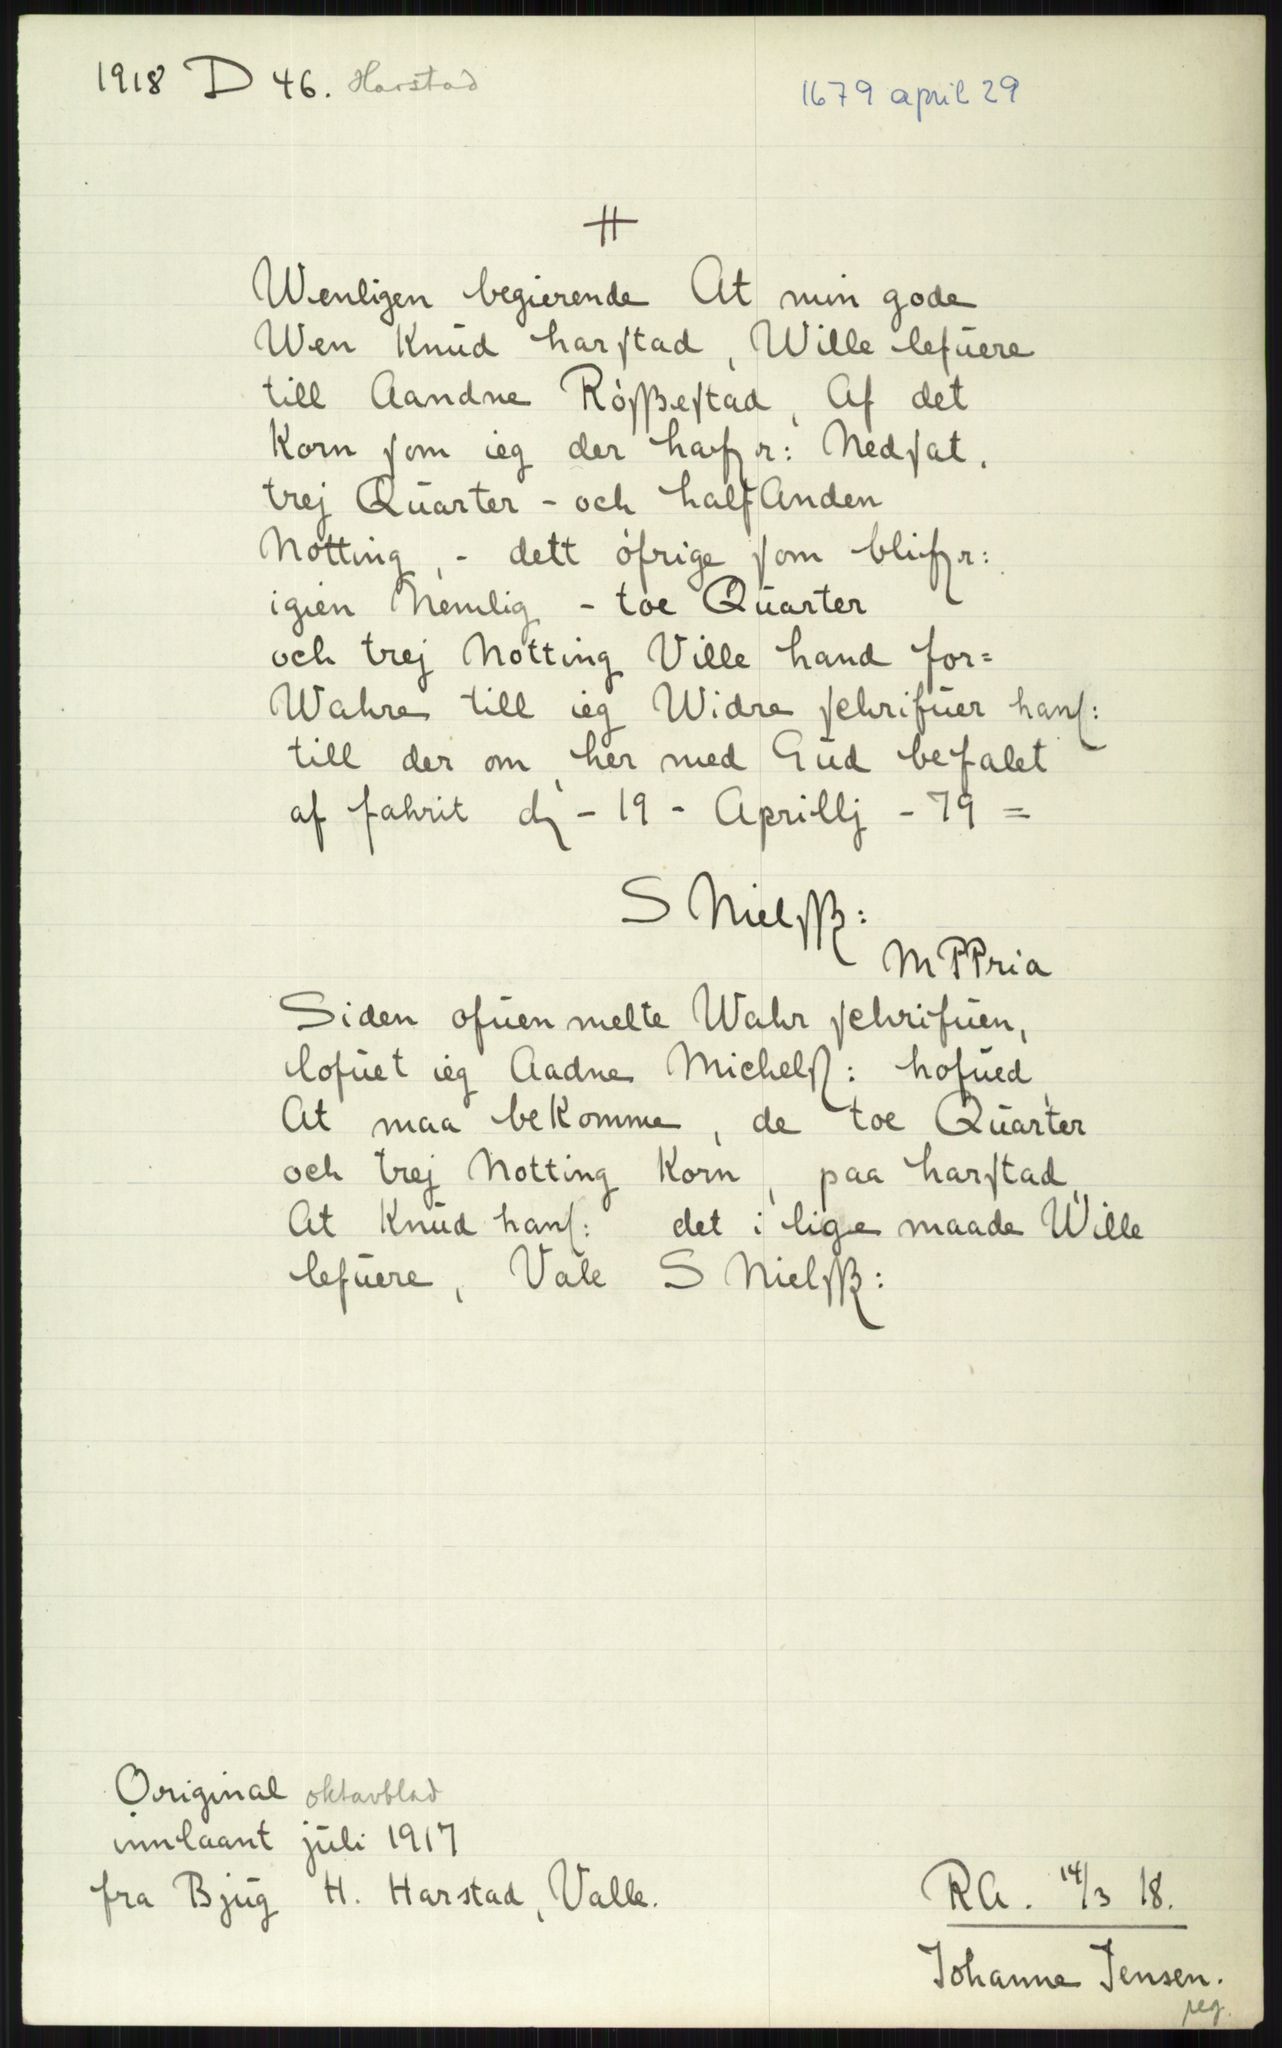 1918 D 46. Harstad
1679 april 29
Wenligen begierende At min gode
Wen Knud harſtad, Wille lefuere
till Aandne Rößßeſtad, Af det
Korn ſom ieg der hafr: Nedſat,
trej Quarter - och half Anden
Notting, - dett öfrige ſom blifr:
igien Nemlig - toe Quarter
och trej Notting Ville hand for=
Wahre till ieg Widre ſchrifuer hanſ:
till der om, her med Gud befalet
af fahrit d - 19 - Aprillj - 79 =
S Nielſß:
MPPria
Siden ofuen melte Wahr ſchrifuen,
lofuet ieg Aadne Michelſ: hofued,
At maa beKomme, de toe Quarter
och trej Notting Korn, paa harſtad,
At Knud hanſ: det i lige maade Wille
lefuere, Vale S Nielſß:
Original oktavblad
innlaant juli 1917
fra Bjug H. Harstad, Valle.
RA. 14/3 18.
Johanne Jensen.
reg.